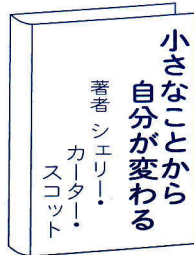 小さなことから
自分が変わる
著者 シェリー・
カーター・
スコット